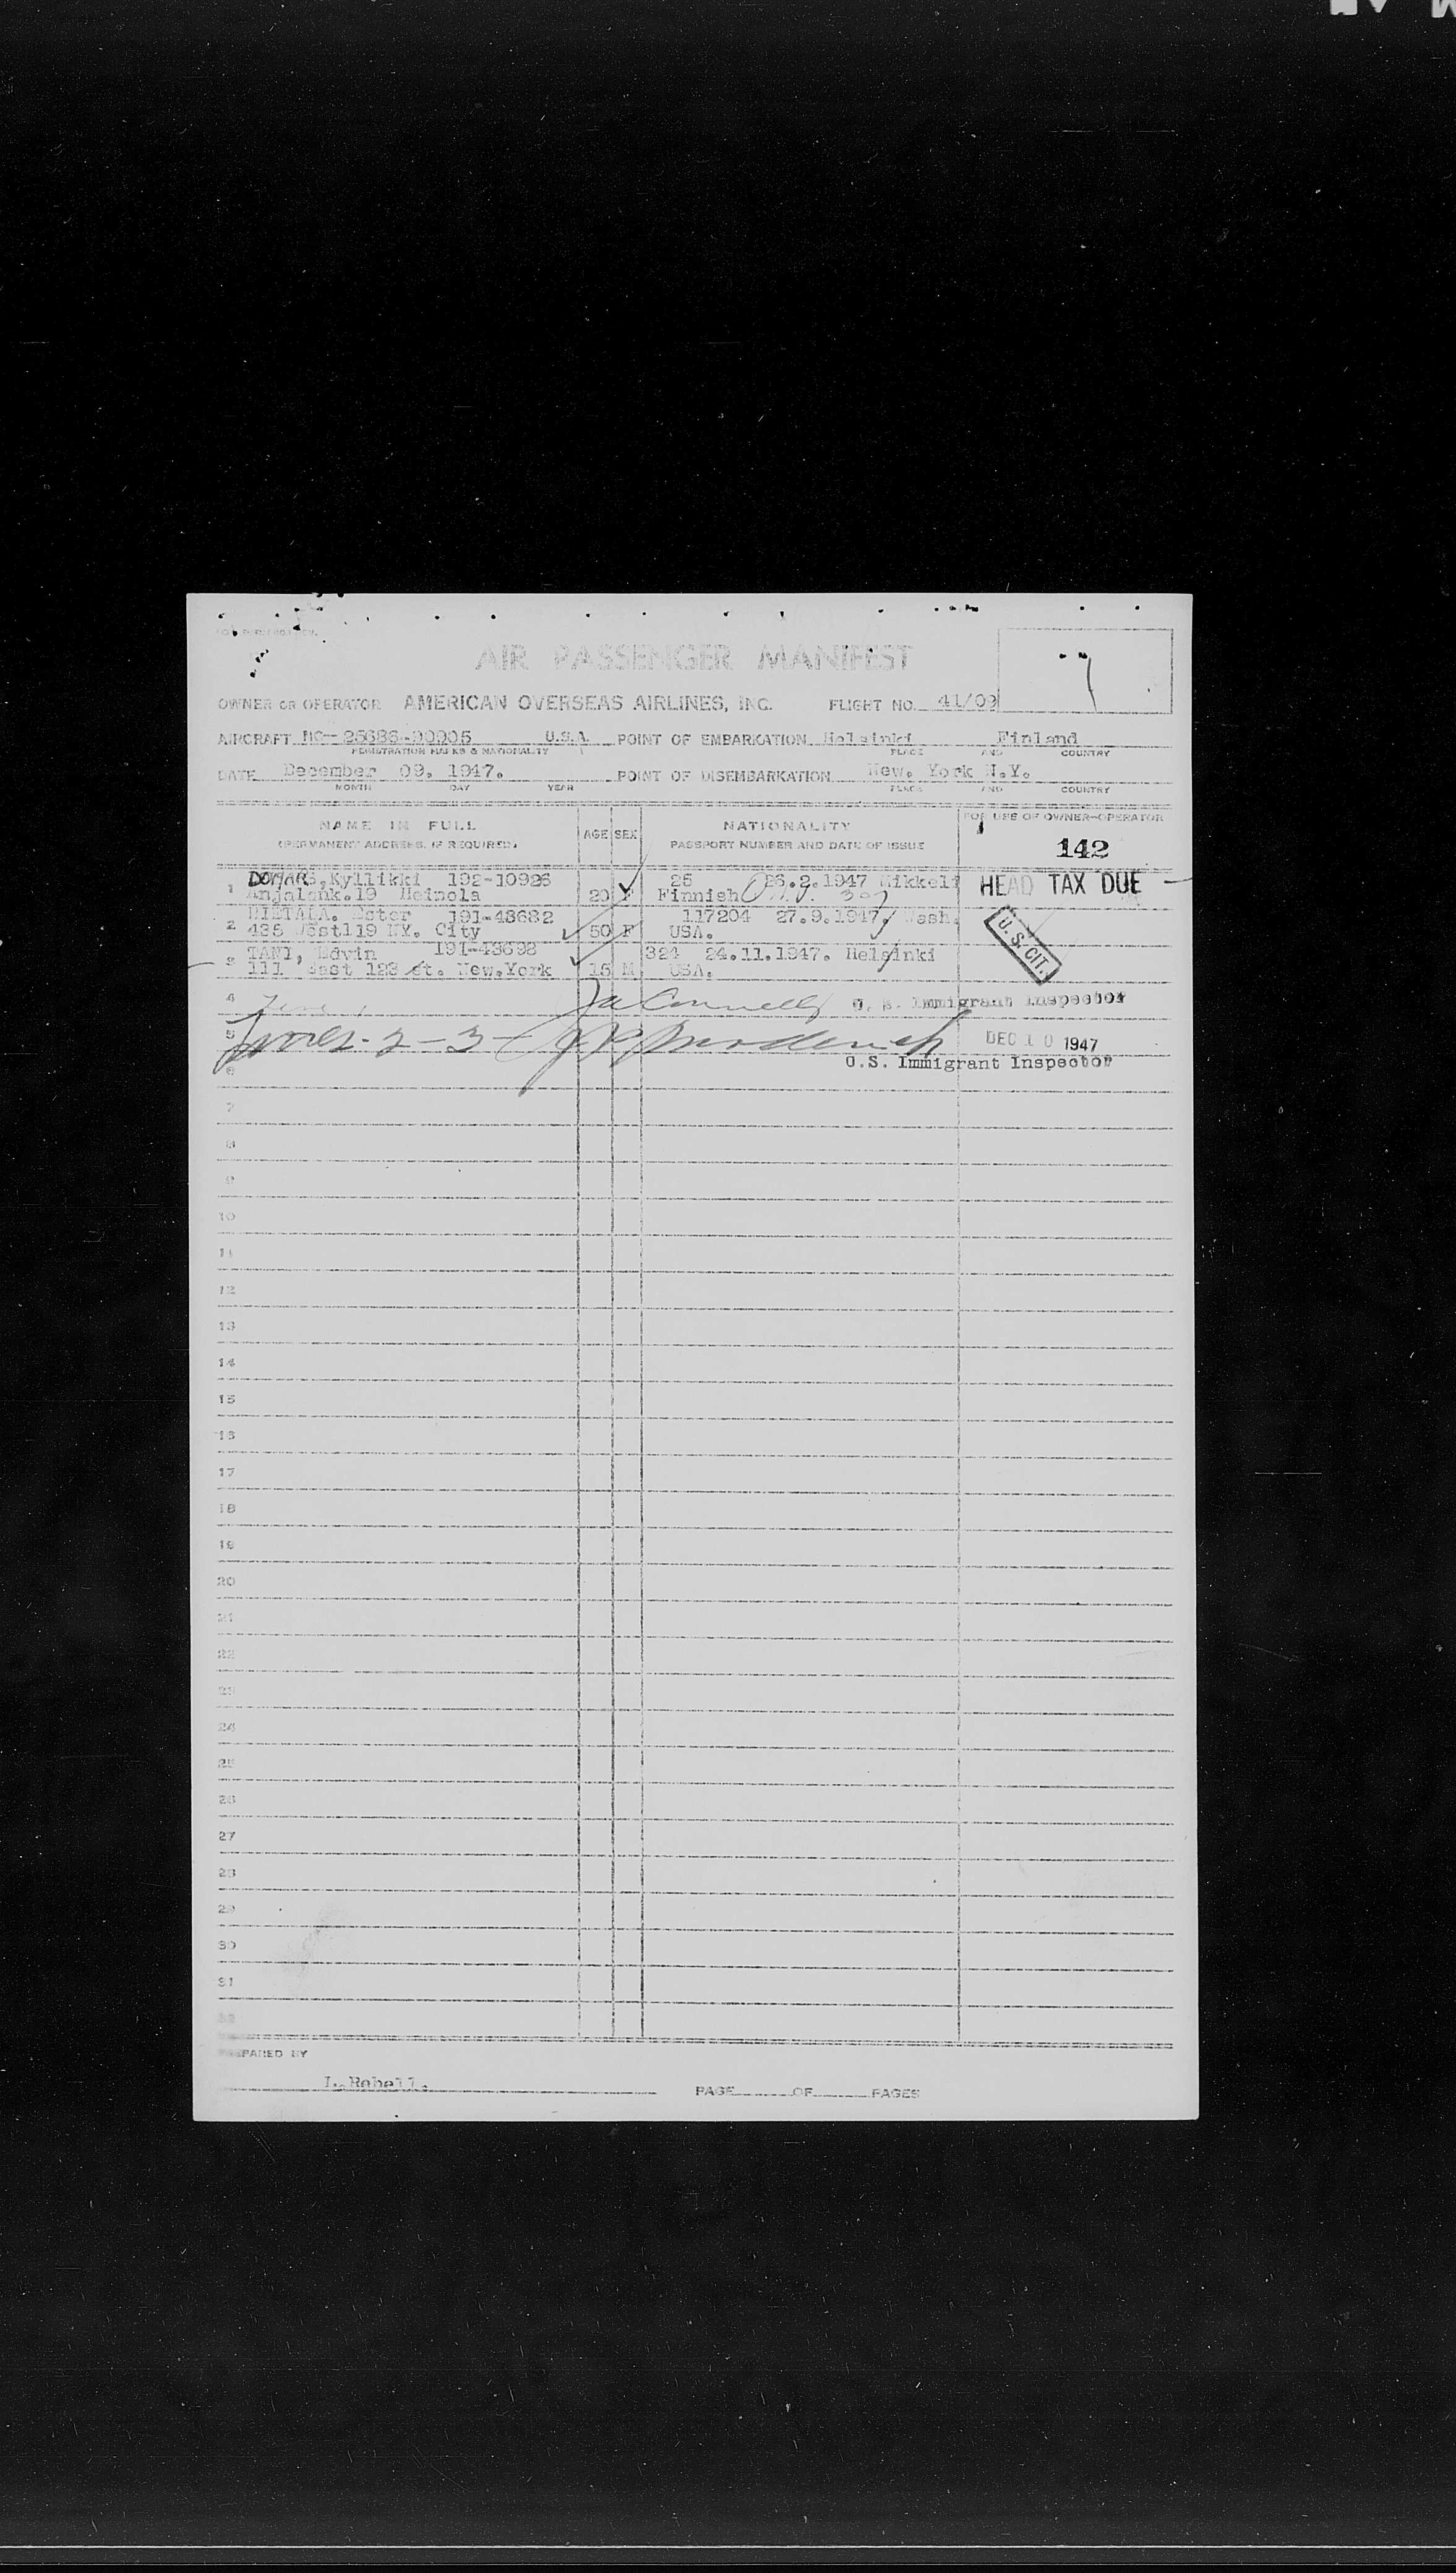 AIR PASSENGER MANIFEST
OWNER OR OPERATOR AMERICAN OVERSEAS AIRLINES, INC. FLIGHT NO. 41/09
AIRCRAFT NC- U.S.A. POINT OF EMBARKATION Helsinki Finland
REGISTRATION MARKS & NATIONALITY PLACE AND COUNTRY
DATE December 09. 1947. POINT OF DISEMBARKATION New. York N.Y.
MONTH DAY YEAR PLACE AND COUNTRY
NAME IN FULL AGE SEX NATIONALITY FOR USE OF OWNER-OPERATOR
(PERMANENT ADDRESS, IF REQUIRED) PASSPORT NUMBER AND DATE OF ISSUE 142
1 Kyllikki 192-10926 25 26.2.1947 Mikkeli HEAD TAX DUE
19 Heinola 20 F Finnish
2 HIETALA. Ester 191-43682 117204 27.9.1947. Wash.
435 West119 NY. City 50 F USA. U.S. CIT.
3 TANI, Edvin 191-43698 324 24.11.1947. Helsinki
111 East 123 st. New.York 15 M USA.
4 U. S. Immigrant Inspector
5 2-3- DEC 10 1947
6 U.S. Immigrant Inspector
7
8
9
10
11
12
13
14
15
16
17
18
19
20
21
22
23
24
25
26
27
28
29
30
31
32
PREPARED BY
L.Rebell. PAGE OF PAGES